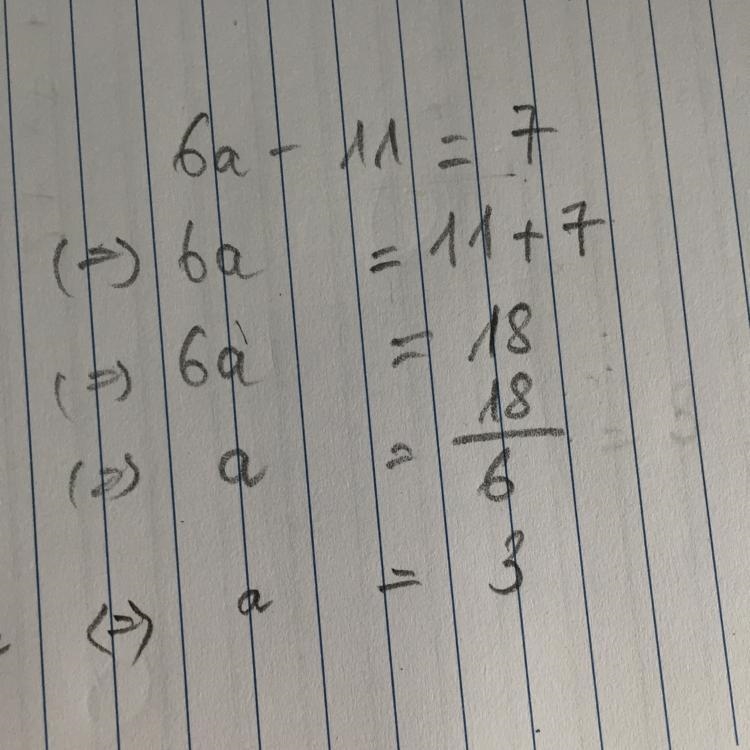 6a - 11 = 7
(=>) 6a = 11 + 7
(=>) 6a = 18
(=>) a = 18/6
(=>) a = 3